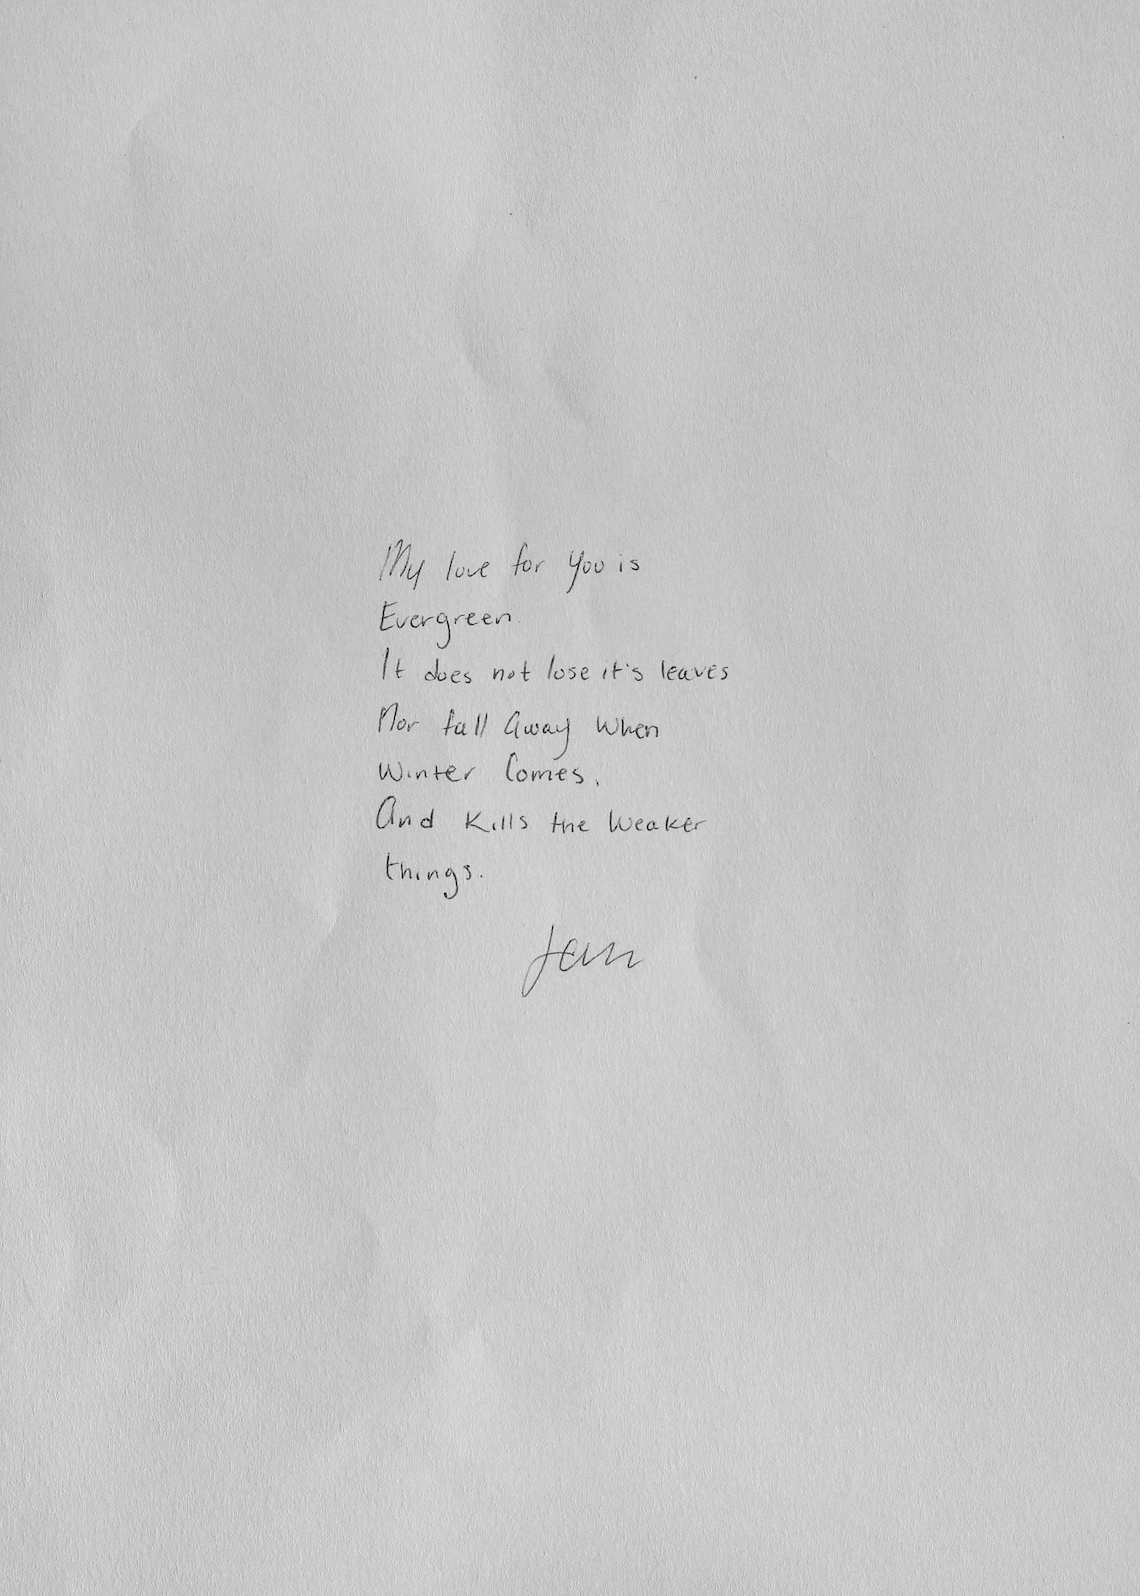 My love for you is
Evergreen.
It does not lose it's leaves
Nor fall away when
Winter Comes.
And Kills the Weaker
things.